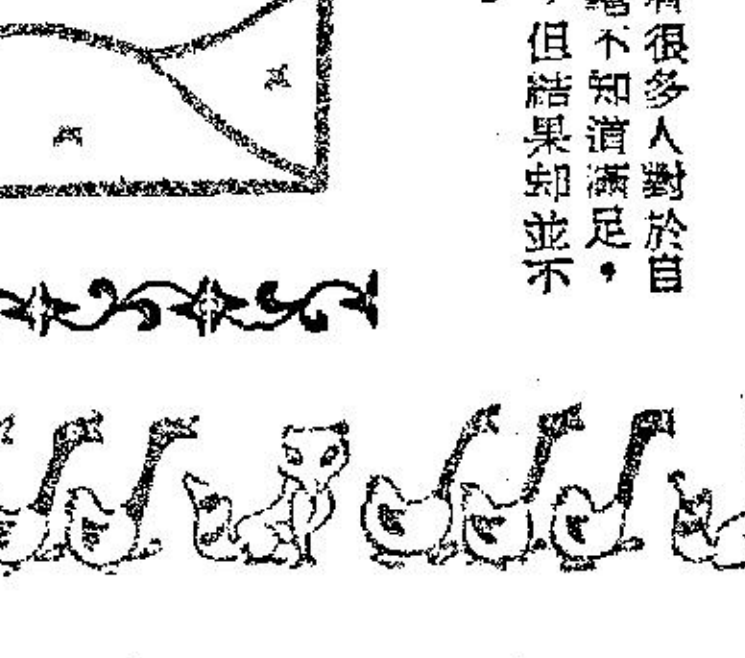 很多人對於自
不知道滿足，
但結果却並不